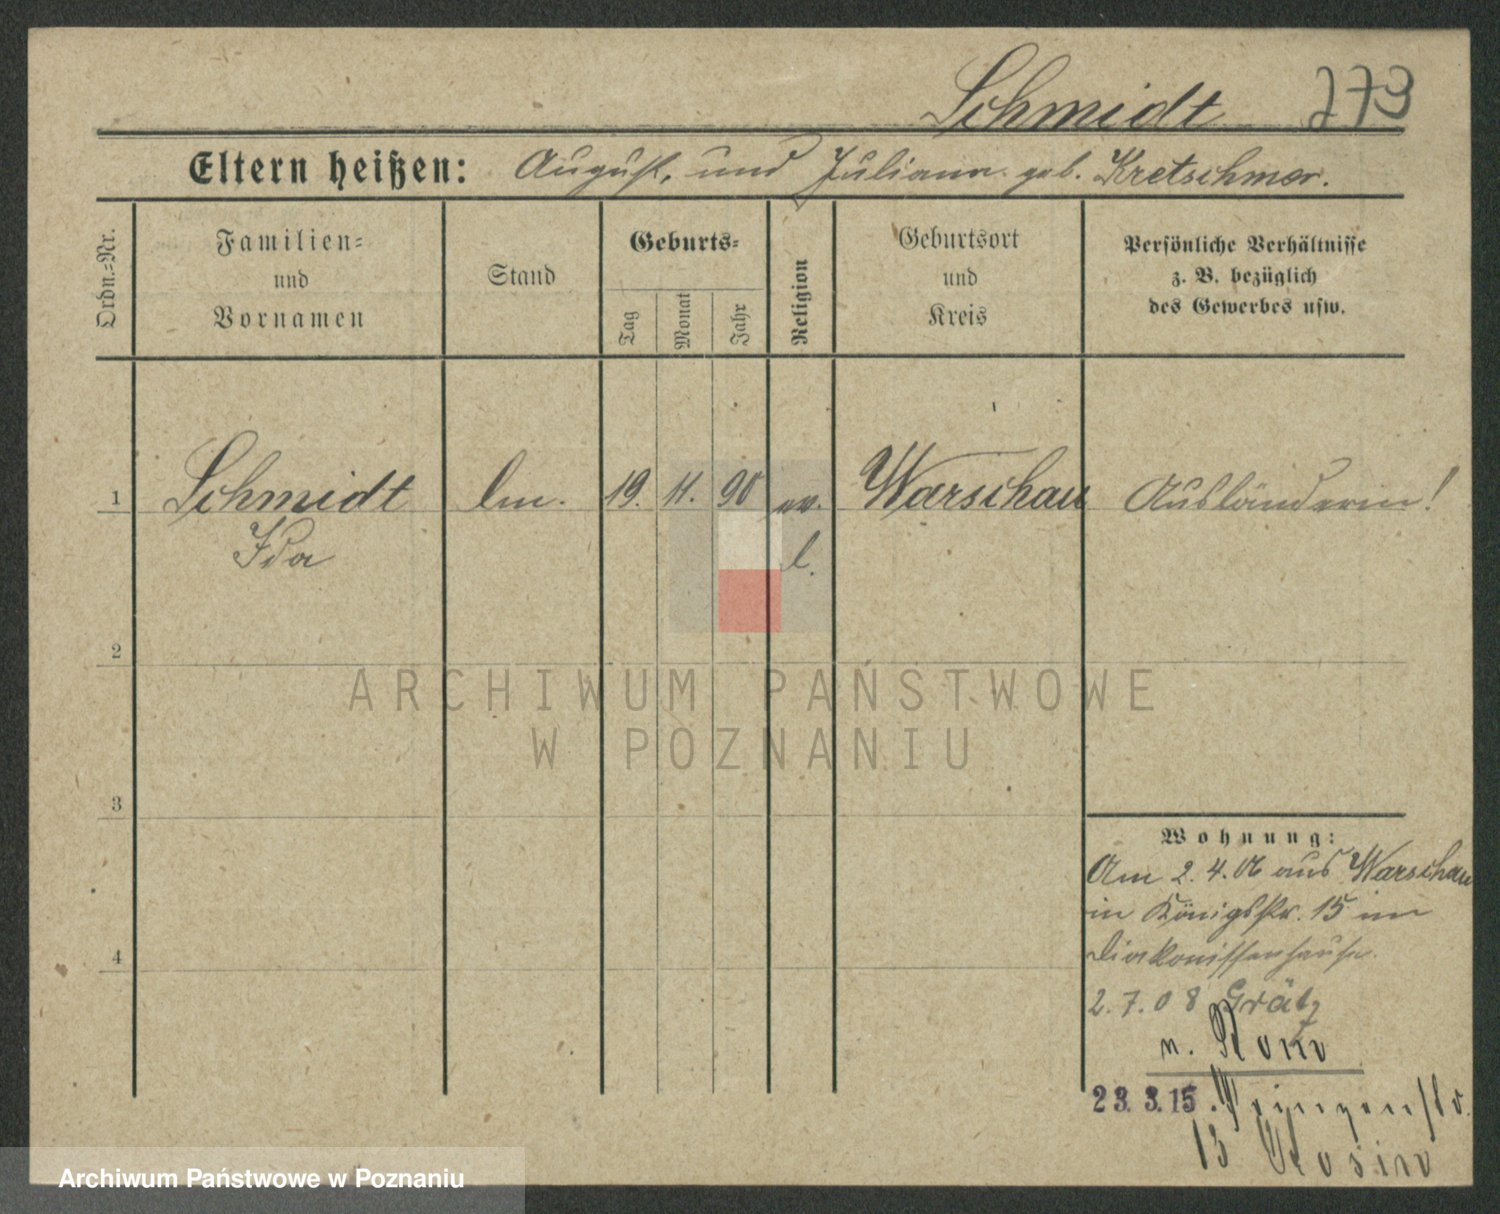 Schmidt 273
Eltern heißen: August, und Juliann. geb. Kretschmer.
Ordn.-Nr.
Familien- und Vornamen
Stand
Geburts-
Tag
Monat
Jahr
Religion
Geburtsort und Kreis
Persönliche Verhältnisse z. B. bezüglich des Gewerbes usw.
1 Schmidt 19. 11. 90 ev. Warschau Ausländerin!
Ida l.
2
ARCHIWUM PAŃSTWOWE
W POZNANIU
3
Wohnung:
Am 2.4.06 aus Warschau
in Königsstr. 15 im
Diakonissenhause.
4
2.7.08 Grätz
n.
23. 3. 15. Prinzenstr.
13
Archiwum Państwowe w Poznaniu